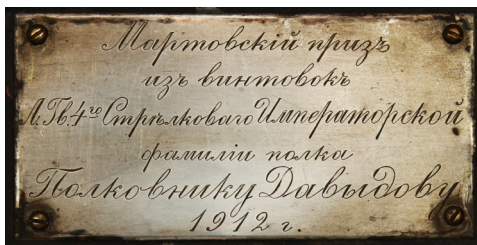 Мартовскій призъ
изъ винтовокъ
Л.Гв.4го Стрѣлковаго Императорской
фамиліи полка
Полковнику Давыдову
1912 г.